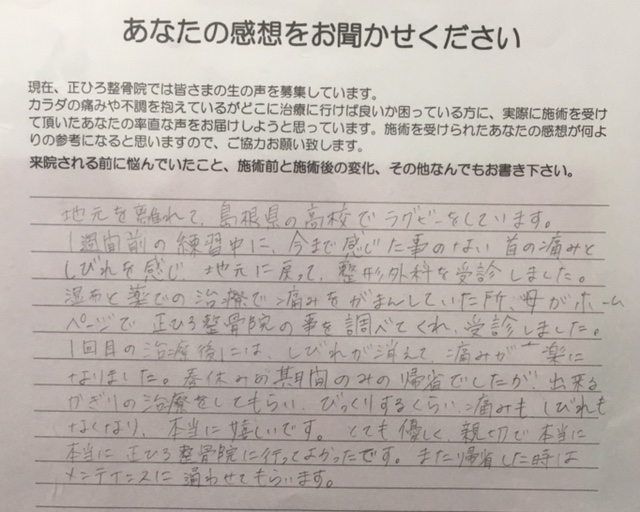 あなたの感想をお聞かせください
現在、正ひろ整骨院では皆さまの生の声を募集しています。
カラダの痛みや不調を抱えているがどこに治療に行けば良いか困っている方に、実際に施術を受け
て頂いたあなたの率直な声をお届けしようと思っています。施術を受けられたあなたの感想が何よ
りの参考になると思いますので、ご協力お願い致します。
来院される前に悩んでいたこと、施術前と施術後の変化、その他なんでもお書き下さい。
地元を離れて、島根県の高校でラグビーをしています。
1週間前の練習中に、今まで感じた事のない首の痛みと
しびれを感じ 地元に戻って、整形外科を受診しました。
湿布と薬での治療で痛みをがまんしていた所、母がホーム
ページで正ひろ整骨院の事を調べてくれ、受診しました。
1回目の治療後には、しびれが消えて、痛みが 楽に
なりました。春休みの期間のみの帰省でしたが、出来る
かぎりの治療をしてもらい、びっくりするくらい痛みもしびれも
なくなり、本当に嬉しいです。とても優しく、親切で本当に
本当に正ひろ整骨院に行ってよかったです。また帰省した時は
メンテナンスに通わせてもらいます。